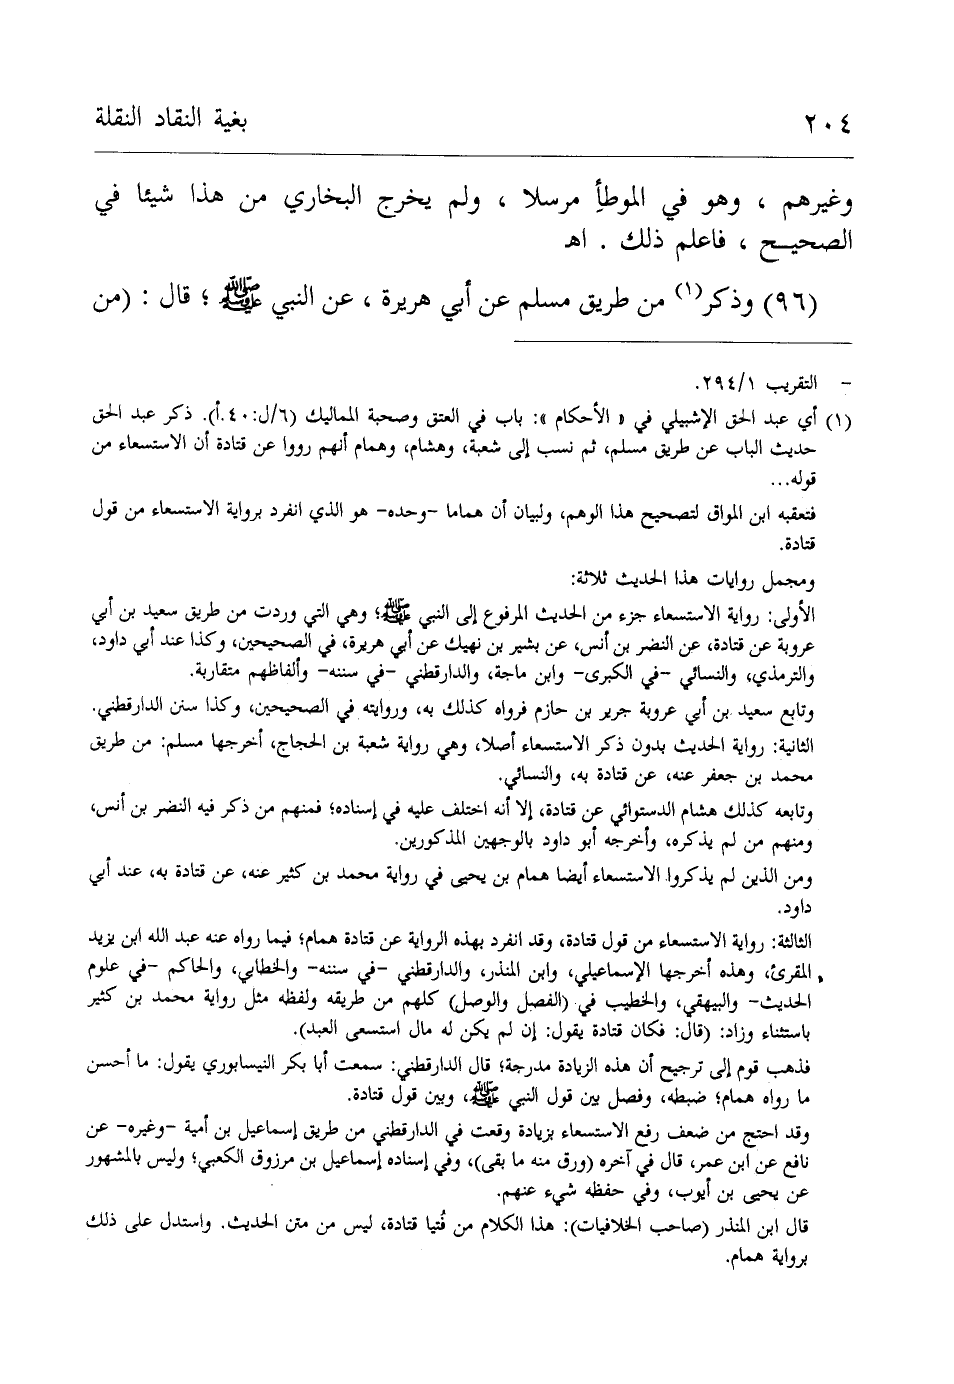 ٢٠٤ بغية النقاد النقلة
وغيرهم ، وهو في الموطأِ مرسلا ، ولم يخرج البخاري من هذا شيئا في
الصحيـح ، فاعلم ذلك . اهـ
(٩٦) وذكر(١) من طريق مسلم عن أبي هريرة ، عن النبي ﷺ ؛ قال : (من
- التقريب ٢٩٤/١.
(١) أي عبد الحق الإشبيلي في « الأحكام »: باب في العتق وصحبة المماليك (٦/ل:٤٠.أ). ذكر عبد الحق
حديث الباب عن طريق مسلم، ثم نسب إلى شعبة، وهشام، وهمام أنهم رووا عن قتادة أن الاستسعاء من
قوله...
فتعقبه ابن المواق لتصحيح هذا الوهم، ولبيان أن هماما -وحده- هو الذي انفرد برواية الاستسعاء من قول
قتادة.
ومجمل روايات هذا الحديث ثلاثة:
الأولى: رواية الاستسعاء جزء من الحديث المرفوع إلى النبي ﷺ؛ وهي التي وردت من طريق سعيد بن أبي
عروبة عن قتادة، عن النضر بن أنس، عن بشير بن نهيك عن أبي هريرة، في الصحيحين، وكذا عند أبي داود،
والترمذي، والنسائي -في الكبرى- وابن ماجة، والدارقطني -في سننه- وألفاظهم متقاربة.
وتابع سعيد بن أبي عروبة جرير بن حازم فرواه كذلك به، وروايته في الصحيحين، وكذا سنن الدارقطني.
الثانية: رواية الحديث بدون ذكر الاستسعاء أصلا، وهي رواية شعبة بن الحجاج، أخرجها مسلم: من طريق
محمد بن جعفر عنه، عن قتادة به، والنسائي.
وتابعه كذلك هشام الدستوائي عن قتادة، إلا أنه اختلف عليه في إسناده؛ فمنهم من ذكر فيه النضر بن أنس،
ومنهم من لم يذكره، وأخرجه أبو داود بالوجهين المذكورين.
ومن الذين لم يذكروا الاستسعاء أيضا همام بن يحيى في رواية محمد بن كثير عنه، عن قتادة به، عند أبي
داود.
الثالثة: رواية الاستسعاء من قول قتادة، وقد انفرد بهذه الرواية عن قتادة همام؛ فيما رواه عنه عبد الله ابن يزيد
المقرئ، وهذه أخرجها الإسماعيلي، وابن المنذر، والدارقطني -في سننه- والخطابي، والحاكم -في علوم
الحديث- والبيهقي، والخطيب في (الفصل والوصل) كلهم من طريقه ولفظه مثل رواية محمد بن كثير
باستثناء وزاد: (قال: فكان قتادة يقول: إن لم يكن له مال استسعى العبد).
فذهب قوم إلى ترجيح أن هذه الزيادة مدرجة؛ قال الدارقطني: سمعت أبا بكر النيسابوري يقول: ما أحسن
ما رواه همام؛ ضبطه، وفصل بين قول النبي ﷺ، وبين قول قتادة.
وقد احتج من ضعف رفع الاستسعاء بزيادة وقعت في الدارقطني من طريق إسماعيل بن أمية -وغيره- عن
نافع عن ابن عمر، قال في آخره (ورق منه ما بقى)، وفي إسناده إسماعيل بن مرزوق الكعبي؛ وليس بالمشهور
عن يحيى بن أيوب، وفي حفظه شيء عنهم.
قال ابن المنذر (صاحب الخلافيات): هذا الكلام من فُتيا قتادة، ليس من متن الحديث. واستدل على ذلك
برواية همام.